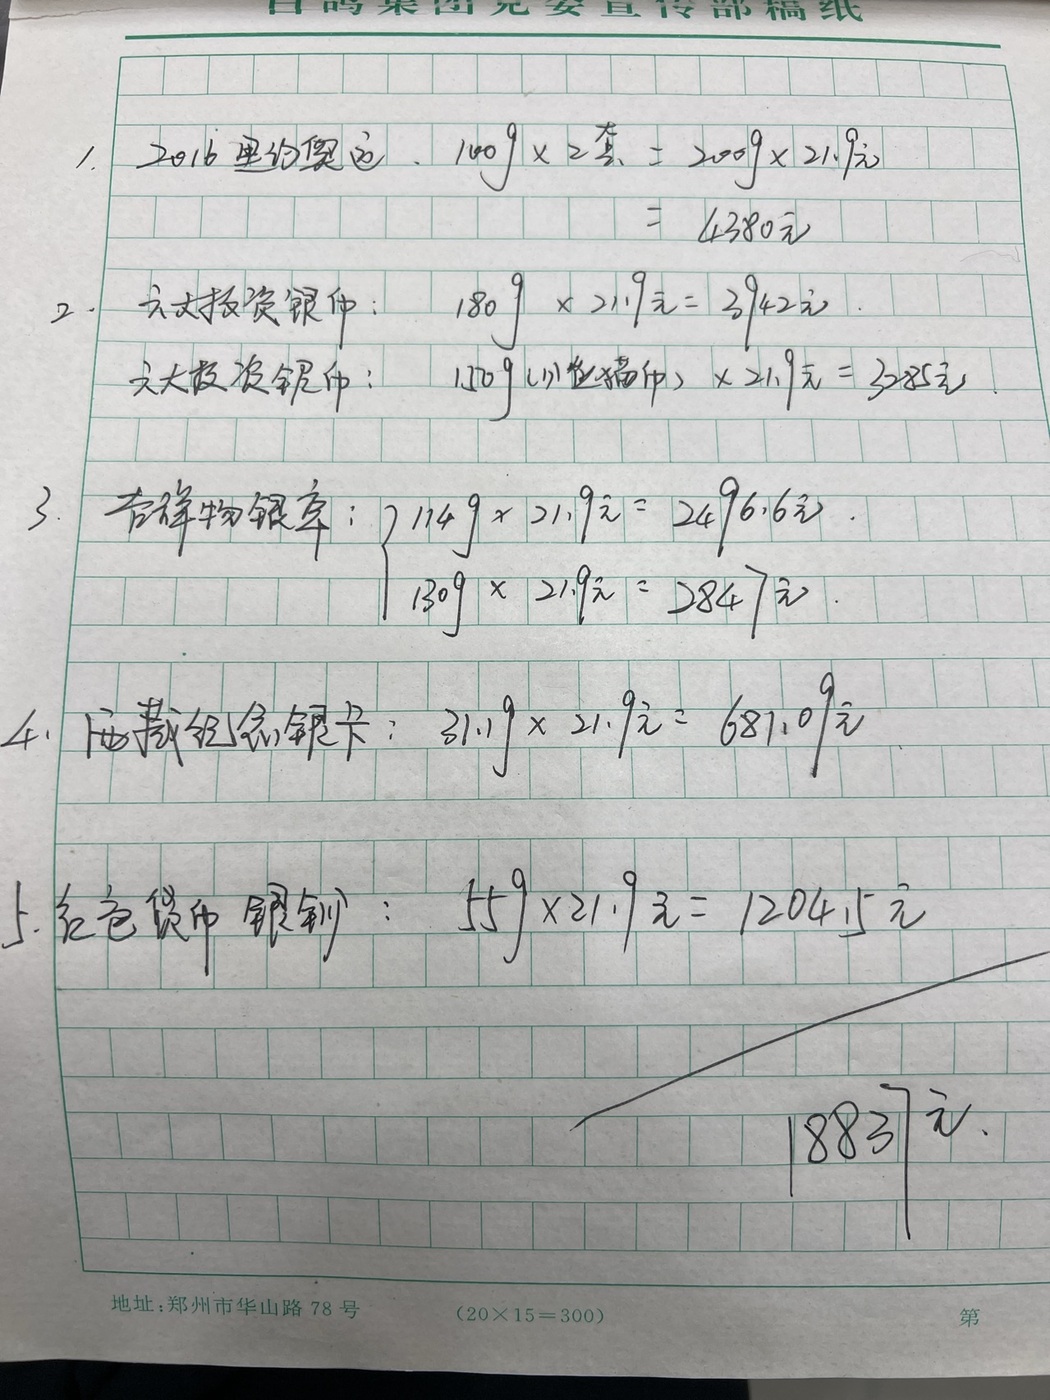 白鸽集团党委宣传部稿纸
1. 2016里约奥运. 100g×2套=200g×21.9元
=4380元
2. 六大投资银币: 180g×21.9元=3942元.
六大投资银币: 150g(川熊猫币)×21.9元=3285元.
3. 吉祥物银章: 114g×21.9元=2496.6元.
130g×21.9元=2847元.
4. 西藏纪念银卡: 31.1g×21.9元=681.09元
5. 红色货币银钞: 55g×21.9元=1204.5元
18837元.
地址:郑州市华山路78号 (20×15=300) 第